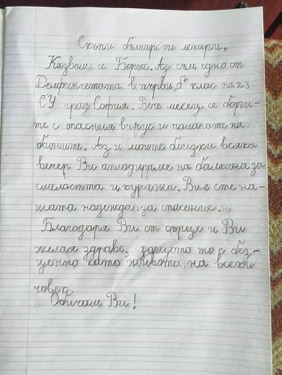 Скъпи български лекари,
Казвам се Борис. Аз съм едно от
Демритетата в първи "б" клас на 23
СУ град София. Вие месец се борите
те с опасния вирус и помагате на
болните. Аз и моите близки всяка
вечер Ви аплодираме на балкона за
смелостта и куража. Вие сте на-
шата надежда за спасение.
Благодаря Ви от сърце и Ви
желая здраве, защото то е без-
ценно като живота на всеки
човек.
Обичам Ви!